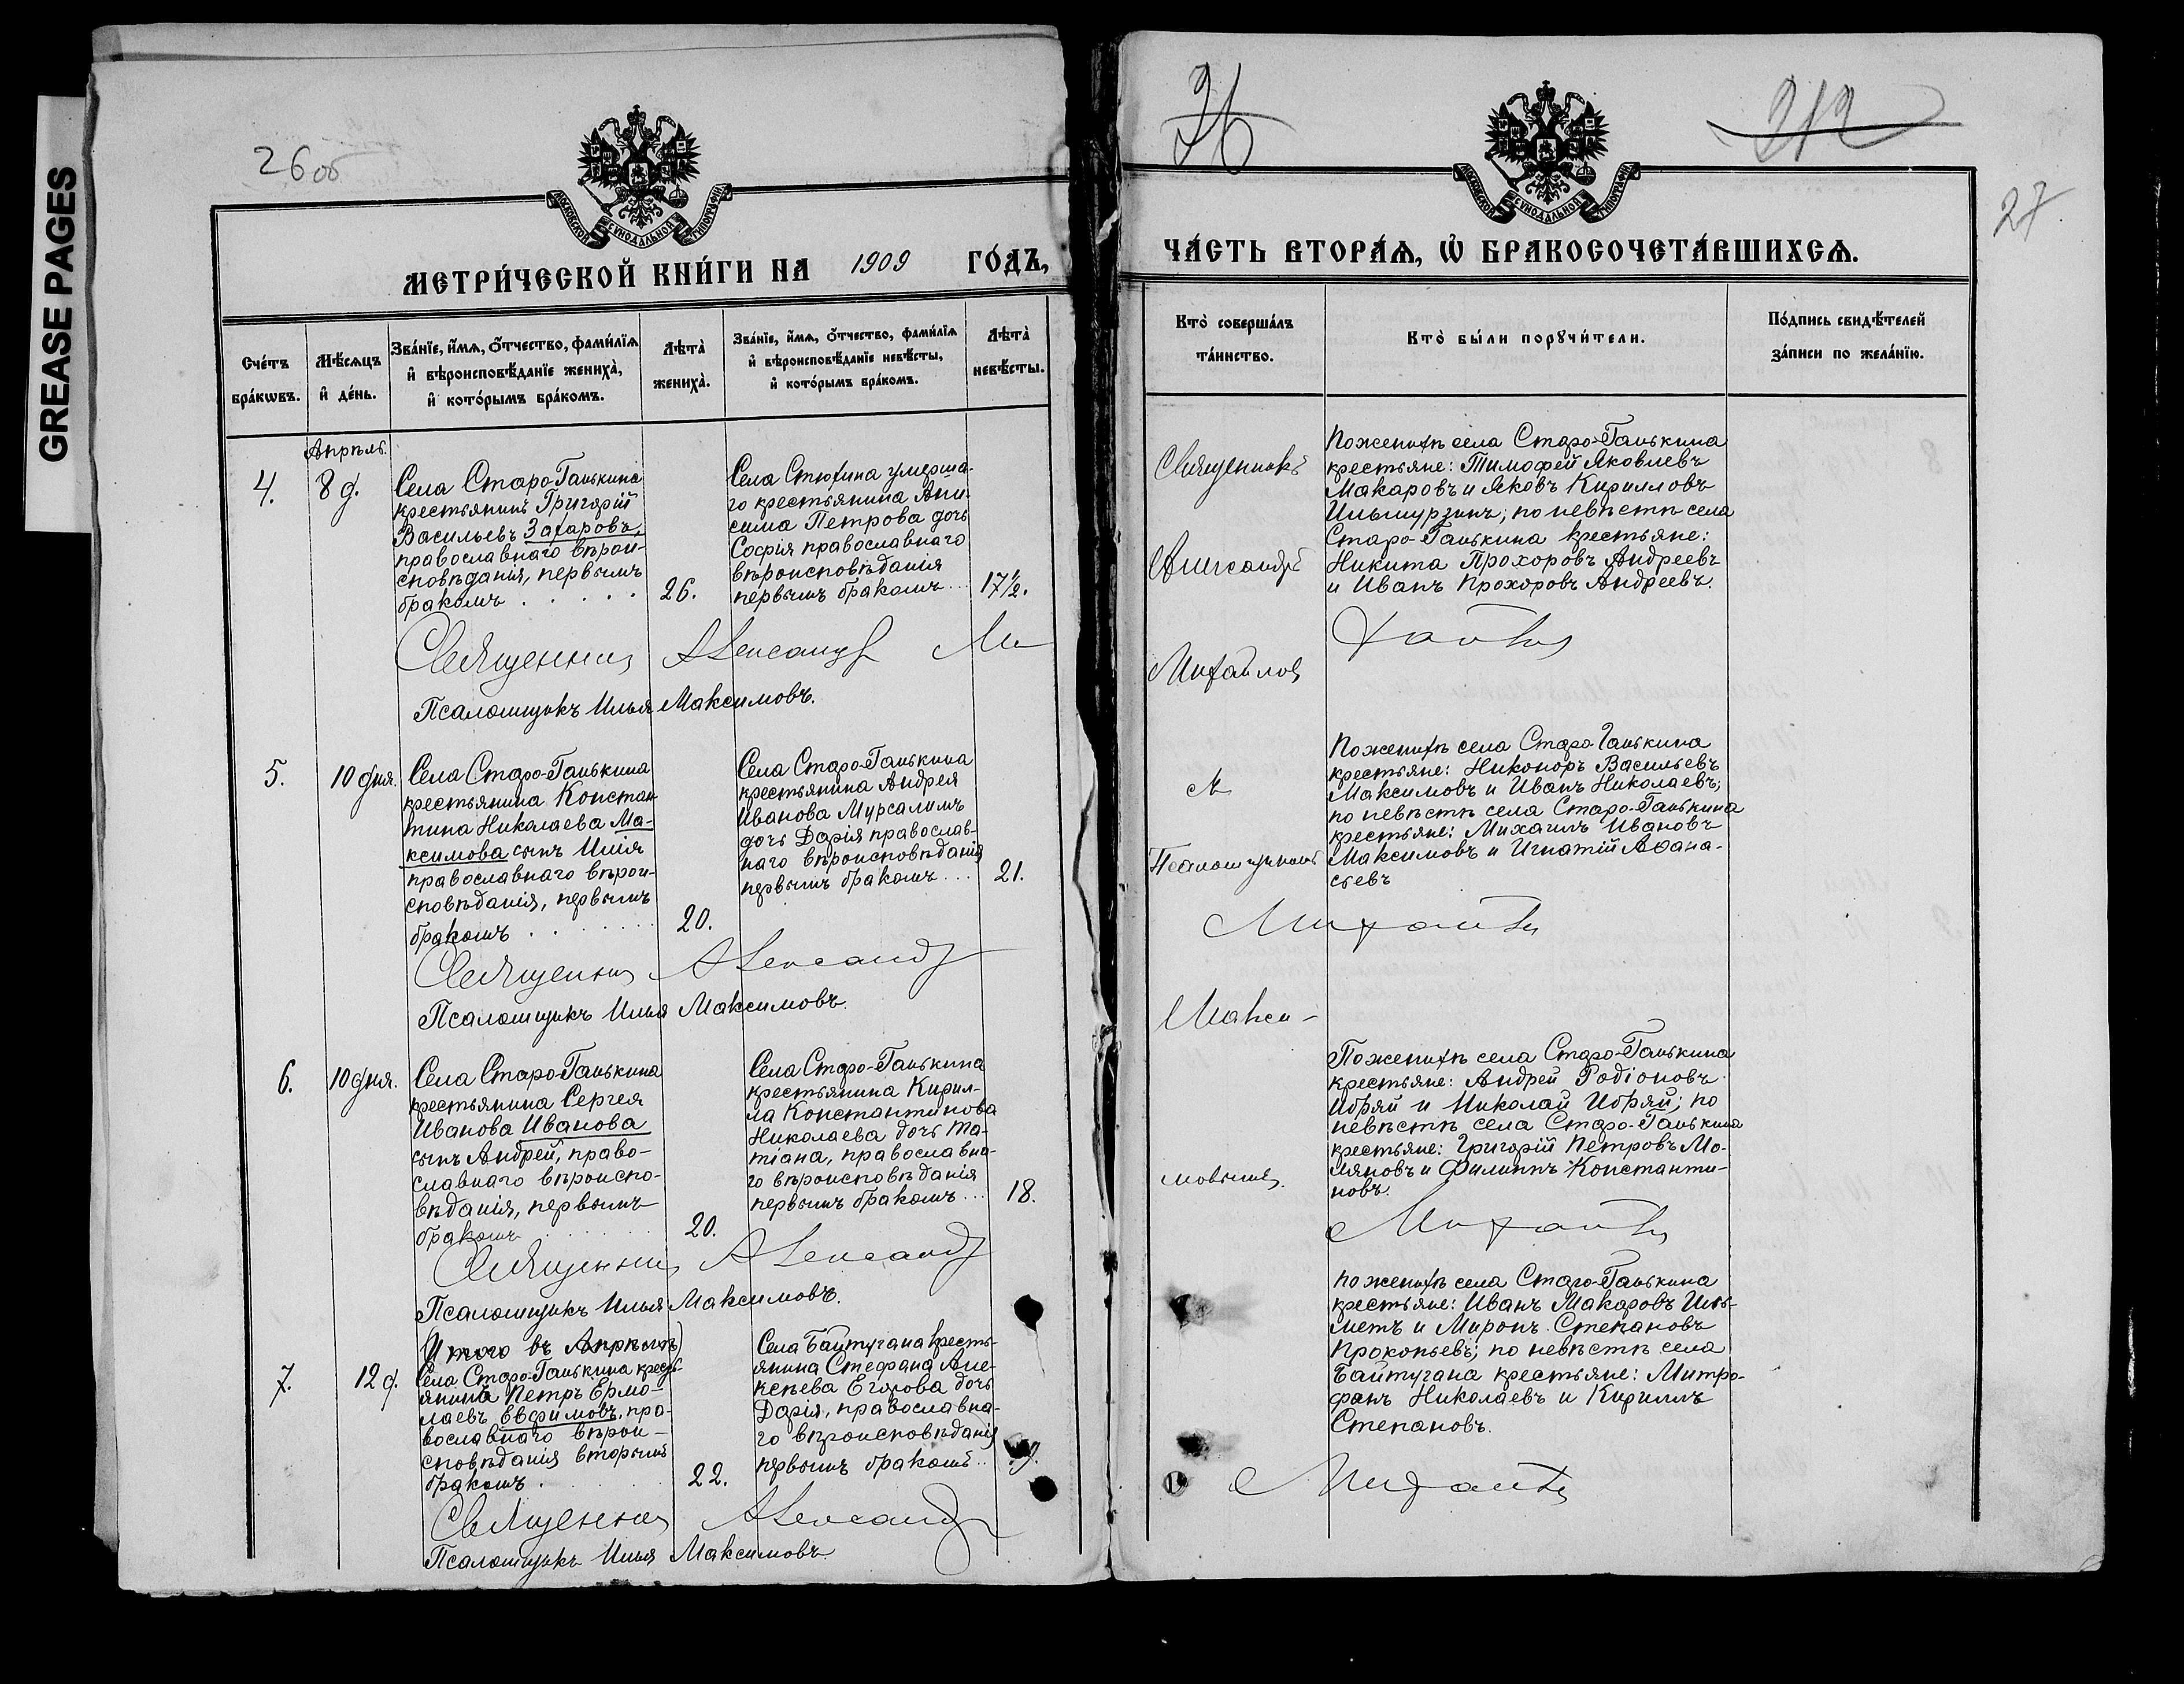 GREASE PAGES
26об
МОСКОВСКОЙ СѴНОДАЛЬНОЙ ТИПОГРАФІИ
МЕТРИ́ЧЕСКОЙ КНИ́ГИ НА 1909 ГО́ДЪ,
Сче́тъ бра́кѡвъ.
Мѣ́сѧцъ и҆ де́нь.
Зва́нїе, и҆́мѧ, ѻ҆́тчество, фами́лїѧ и҆ вѣроисповѣ́данїе жениха̀, и҆ кото́рымъ бра́комъ.
Лѣта̀ жениха̀.
Зва́нїе, и҆́мѧ, ѻ҆́тчество, фами́лїѧ и҆ вѣроисповѣ́данїе невѣ́сты, и҆ кото́рымъ бра́комъ.
Лѣта̀ невѣ́сты.
Апрѣль.
4.
8 д.
Села Старо-Ганькина
крестьянинъ Григорій
Васильевъ Захаровъ,
православнаго вѣрои-
сповѣданія, первымъ
бракомъ . . . . .
26.
Села Стюхина умерша-
го крестьянина Ани-
сима Петрова дочь
Софія православнаго
вѣроисповѣданія
первымъ бракомъ...
17½.
Священникъ Александръ Ми
Псаломщикъ Илья Максимовъ.
5.
10 дня.
Села Старо-Ганькина
крестьянина Констан
тина Николаева Ма-
ксимова сынъ Илія
православнаго вѣрои-
сповѣданія, первымъ
бракомъ . . . . .
20.
Села Старо-Ганькина
крестьянина Андрея
Иванова Мурсалимъ
дочь Дарія православ-
наго вѣроисповѣданія
первымъ бракомъ ...
21.
Священникъ Александръ
Псаломщикъ Илья Максимовъ.
6.
10 дня.
Села Старо-Ганькина
крестьянина Сергея
Иванова Иванова
сынъ Андрей, право-
славнаго вѣроиспо-
вѣданія, первымъ
бракомъ . . . . .
20.
Села Старо-Ганькина
крестьянина Кирил-
ла Константинова
Николаева дочь Та-
тіана, православна-
го вѣроисповѣданія
первымъ бракомъ ...
18.
Священникъ Александръ
Псаломщикъ Илья Максимовъ.
(Итого въ Апрѣлѣ)
7.
12 д.
Села Старо-Ганькина кресть-
янина Петръ Ермо-
лаевъ Евфимовъ, пра-
вославнаго вѣрои-
сповѣданія вторымъ
бракомъ .
22.
Села Байтугана кресть-
янина Стефана Але-
ксѣева Егорова дочь
Дарія, православна-
го вѣроисповѣданія
первымъ бракомъ..
9.
Священникъ Александръ
Псаломщикъ Илья Максимовъ.
26
212
27
МОСКОВСКОЙ СѴНОДАЛЬНОЙ ТИПОГРАФІИ
ЧА́СТЬ ВТОРА́Ѧ, Ѡ҆ БРАКОСОЧЕТА́ВШИХСѦ.
Кто̀ соверша́лъ та́инство.
Кто̀ бы́ли порꙋчи́тели.
По́дпись свидѣ́телей за́писи по жела́нїю.
Священникъ
Александръ
Михайловъ
съ
Псаломщикомъ
Макси-
мовымъ.
По женихѣ села Старо-Ганькина
крестьяне: Тимофей Яковлевъ
Макаровъ и Яковъ Кирилловъ
Ильмурзинъ; по невѣстѣ села
Старо-Ганькина крестьяне:
Никита Прохоровъ Андреевъ
и Иванъ Прохоровъ Андреевъ.
хайловъ
По женихѣ села Старо-Ганькина
крестьяне: Никоноръ Васильевъ
Максимовъ и Иванъ Николаевъ;
по невѣстѣ села Старо-Ганькина
крестьяне: Михаилъ Ивановъ
Максимовъ и Игнатій Аѳана-
сьевъ
Михайловъ
По женихѣ села Старо-Ганькина
крестьяне: Андрей Родіоновъ
Ибряй и Николай Ибряй; по
невѣстѣ села Старо-Ганькина
крестьяне: Григорій Петровъ Мо-
ляновъ и Филиппъ Константи-
новъ.
Михайловъ
По женихѣ села Старо-Ганькина
крестьяне: Иванъ Макаровъ Иль-
метъ и Миронъ Степановъ
Прокопьевъ; по невѣстѣ села
Байтугана крестьяне: Митро-
фанъ Николаевъ и Кириллъ
Степановъ.
Михайловъ